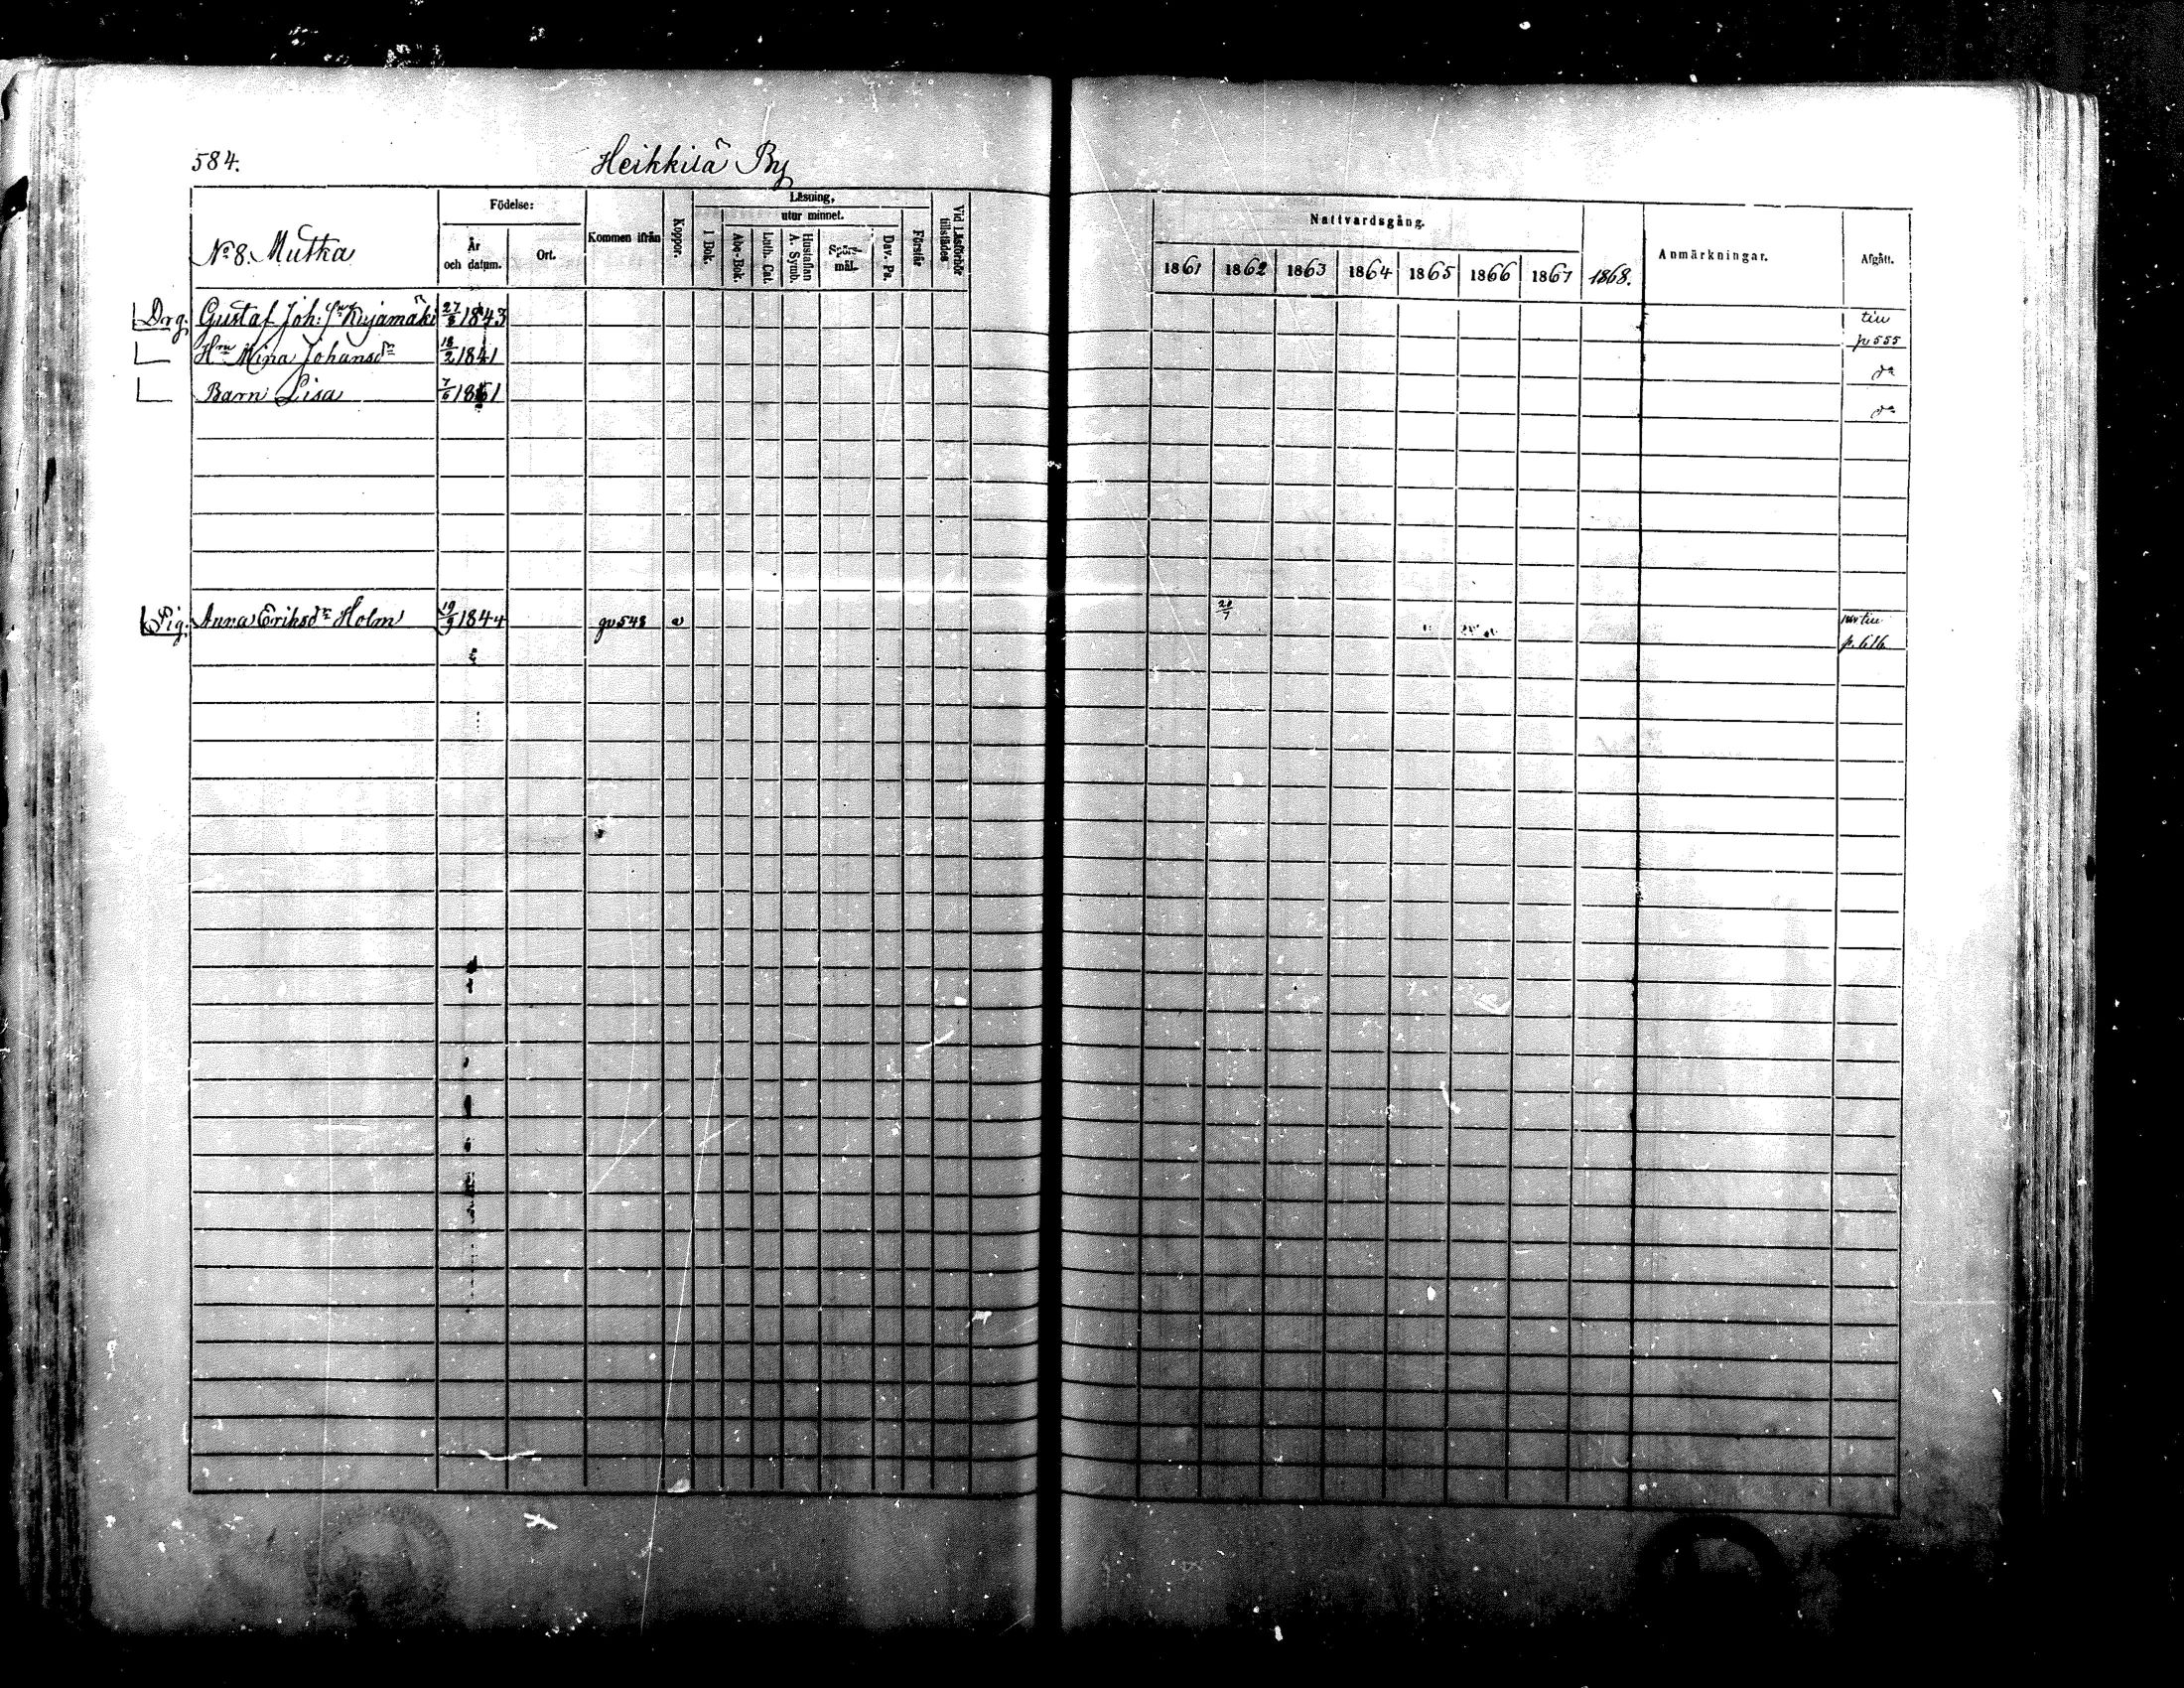 584.
Heikkilä By
No 8. Mutka
Födelse:
År
och datum.
Ort.
Kommen ifrån
Koppor.
Läsning,
utur minnet.
I Bok.
Abc-Bok.
Luth. Cat.
Hustaflan
A. Symb.
Spörs-
mål.
Dav. Ps.
Förstår
Vid Läsförhör
tillstädes
Nattvardsgång.
1861 1862 1863 1864 1865 1866 1867 1868.
Anmärkningar.
Afgått.
Drg. Gustaf Joh: Kujamäki 27/8 1843 till
p 555
Hru Mina Johansdr 18/2 1841 do
Barn Lisa 7/6 1861 do
Pig. Anna Eriksdr Holm 19/9 1844 548 v 20/7 till
p. 616